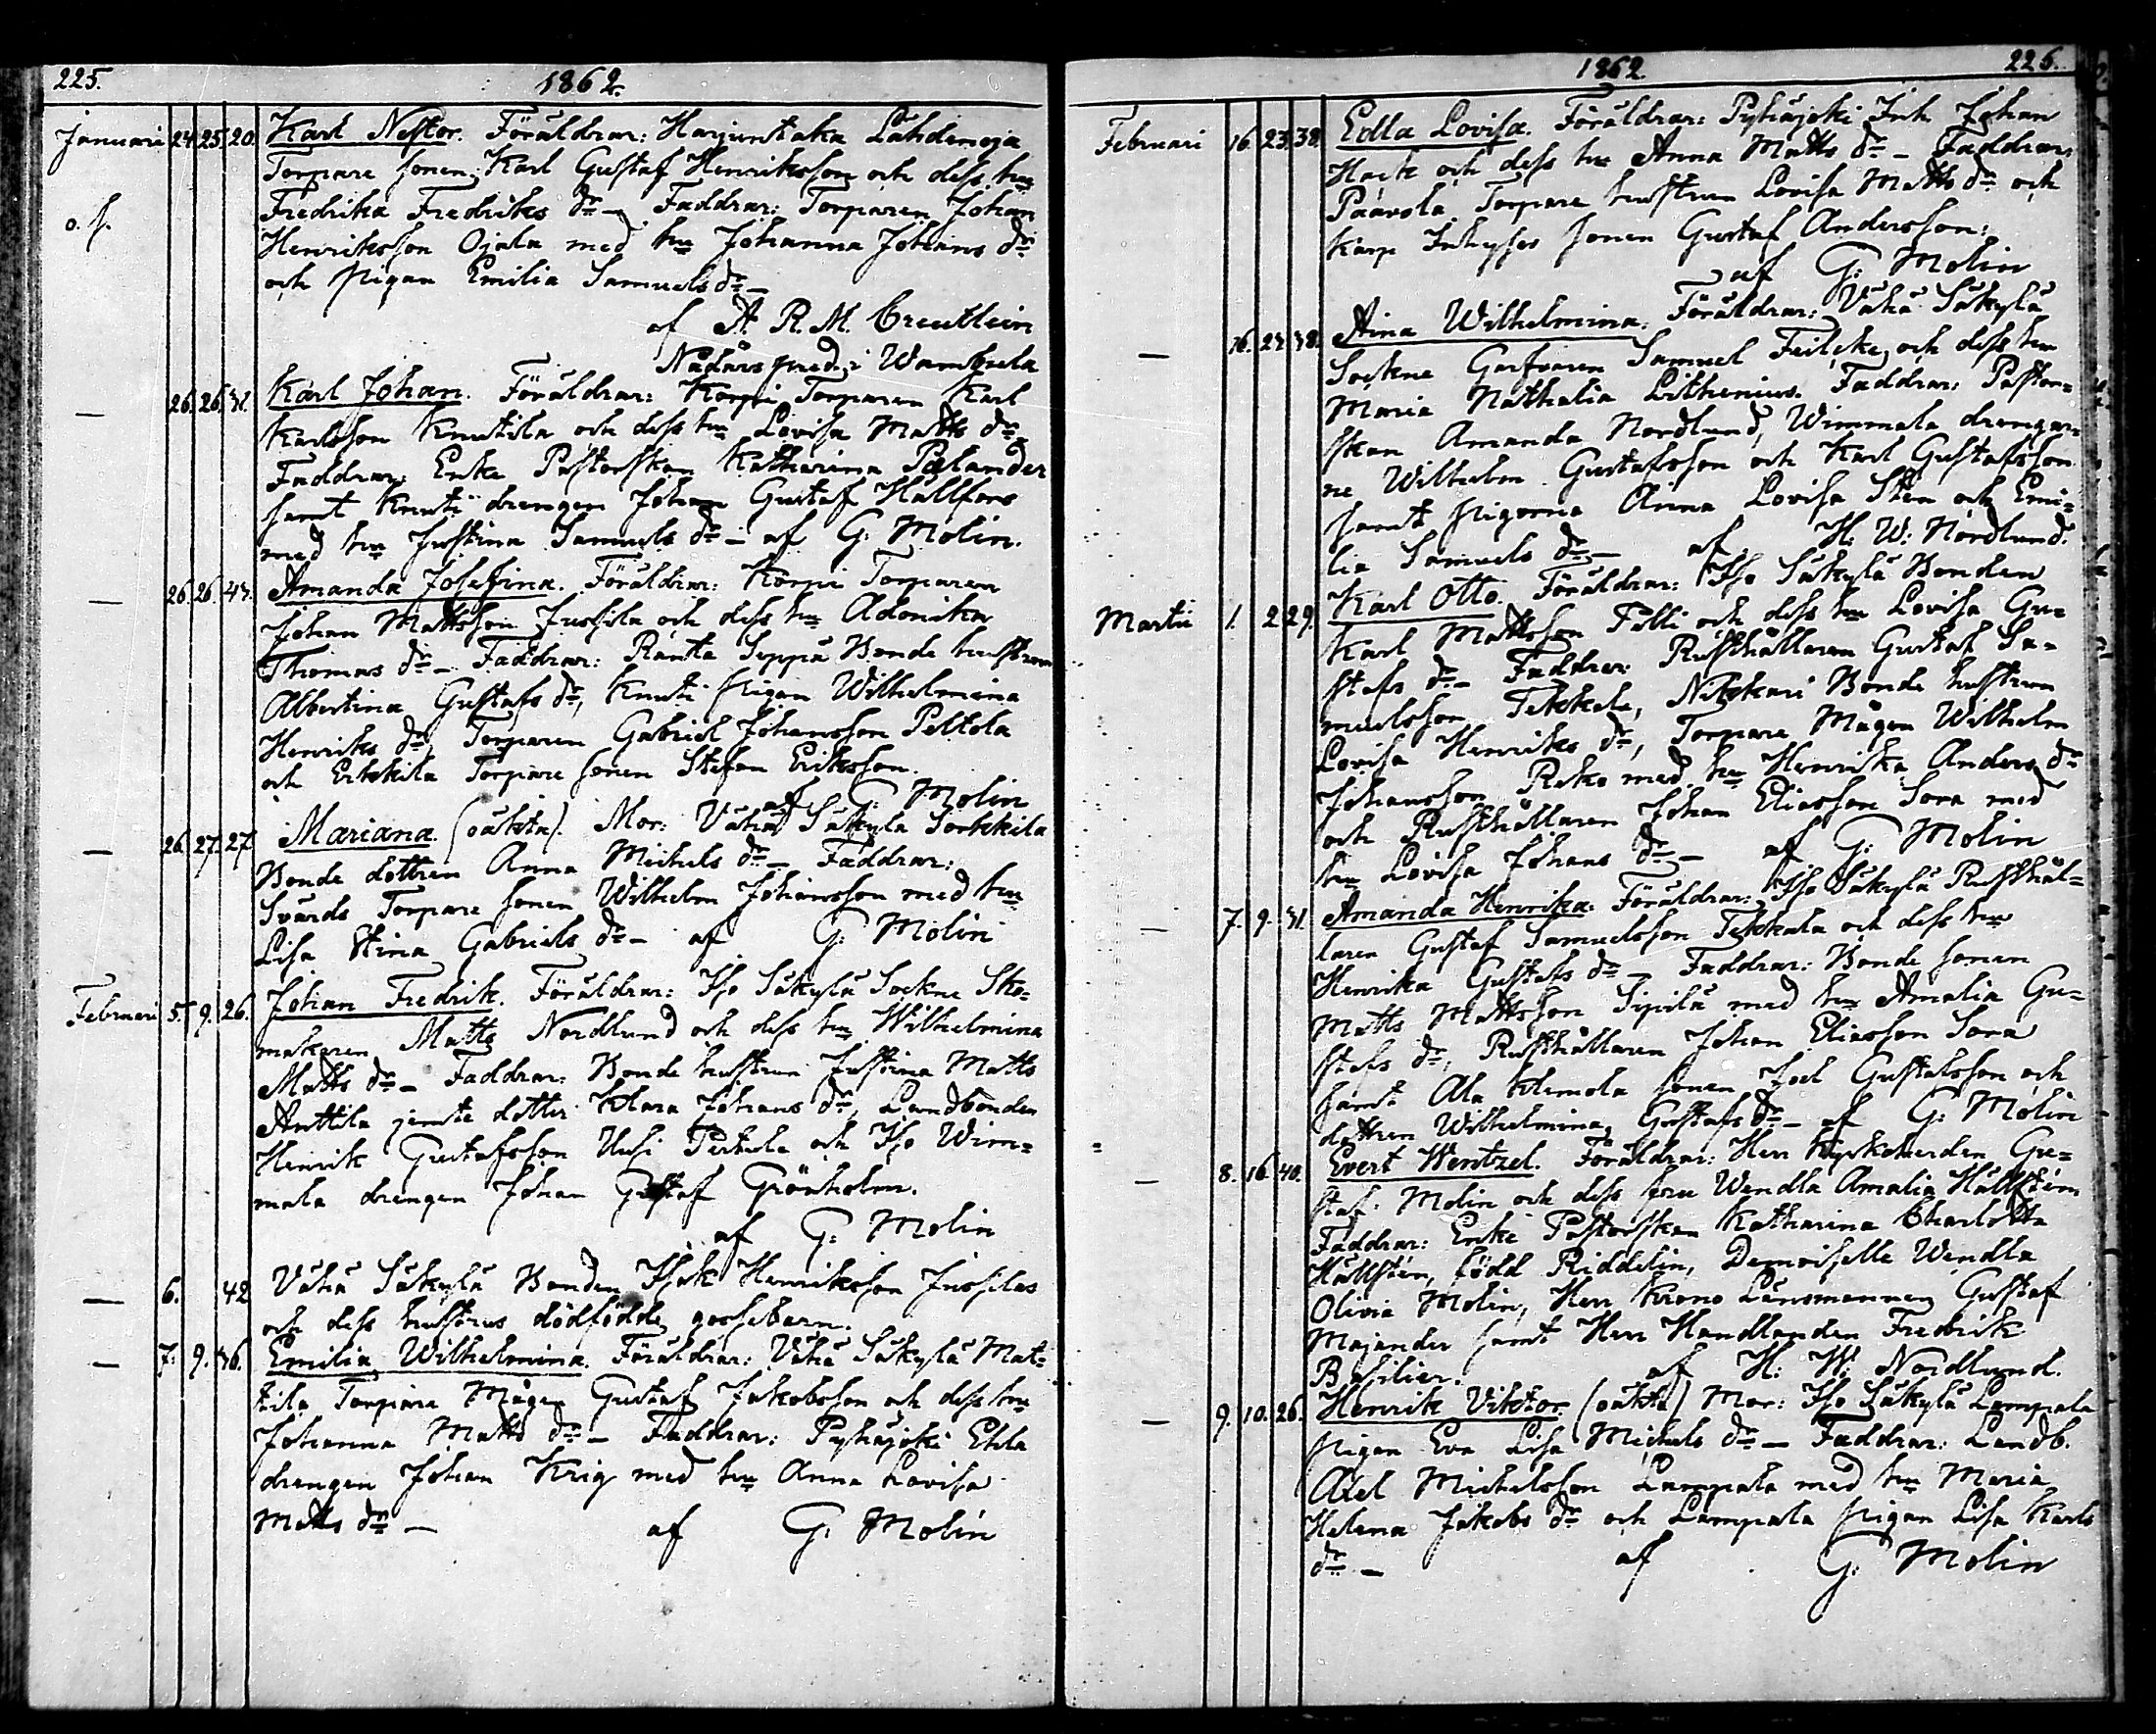 225. 1862.
Januari 24 25 20. Karl Nestor. Föräldrar: Harjuntaka Lähdenoja
Torpare sonen Karl Gustaf Henriksson och dess hu
Fredrika Fredriks dr — Faddrar: Torparen Johan
Henriksson Ojala med hu Johanna Johans dr
och pigan Emilia Samuels dr —
af A. R. M. Creutlein
Nådårs pred. i Wambula
— 26. 26. 31. Karl Johan. Föräldrar: Korpi Torparen Karl
Karlsson Knutila och dess hu Lovisa Matts dr
Faddrar: Enke Pastorskan Katharina Polander
samt Knuti drengen Johan Gustaf Hällfors
med hu Justina Samuels dr — af G: Molin.
— 26. 26. Amanda Josefina. Föräldrar: Korpi Torparen
Johan Mattsson Jussila och dess hu Adonika
Thomas dr — Faddrar: Ranta Seppä Bonde hustrun
Albertina Gustafs dr, Knuti pigan Wilhelmina
Henriks dr, Torparen Gabriel Johansson Peltola
och Erkkila Torpare sonen Stefan Eriksson.
af G: Molin
— 26. 27. 27. Mariana. (oäkta). Mor: Vähä Säkylä Sorkkila
Bonde dottren Anna Michels dr — Faddrar:
Svärds Torpare sonen Wilhelm Johansson med hu
Lisa Stina Gabriels dr — af G: Molin
Februari 5. 9. 26. Johan Fredrik. Föräldrar: Iso Säkylä Sockne Sko-
makaren Matts Nordlund och dess hu Wilhelmina
Matts dr — Faddrar: Bonde hustrun Justina Matts
Anttila jemte dotter Klara Johans dr, Landbonden
Henrik Gustafsson Uusi Perkola och Iso Wim-
mala drengen Johan Gustaf Grönholm.
af G: Molin
— 6. 42 Vähä Säkylä Bonden Isak Henriksson Jussilas
och dess hustrus dödfödde gossebarn.
— 7. 9. 36. Emilia Wilhelmina. Föräldrar: Vähä Säkylä Mat-
tila Torpare Mågen Gustaf Jakobsson och dess hu
Johanna Matts dr — Faddrar: Pyhäjoki Ehla
drengen Johan Krig med hu Anna Lovisa
Matts dr — af G: Molin
1862. 226.
Februari 16. 23. 38. Edla Lovisa. Föräldrar: Pyhäjoki Inh. Johan
Hack och dess hu Anna Matts dr — Faddrar:
Paavola Torpare hustrun Lovisa Matts dr och
Karp Inhyses sonen Gustaf Andersson:
af G: Molin
— 16. 38. Aina Wilhelmina. Föräldrar: Vähä Säkylä
Sockne Garfvaren Samuel Feilcke och dess hu
Maria Nathalia Lithenius. Faddrar: Pastor-
skan Amanda Nordlund, Wimmala drengar-
ne Wilhelm Gustafsson och Karl Gustafsson
samt pigorna Anna Lovisa Sten och Emi-
lia Samuels dr — af H. W. Nordlund.
Martii 1. 2 29. Karl Otto. Föräldrar: Iso Säkylä Bonden
Karl Mattsson Pelli och dess hu Lovisa Gu-
stafs dr — Faddrar: Rusthållaren Gustaf Sa-
muelsson Tekkala, Nikkari Bonde hustrun
Lovisa Henriks dr, Torpare Mågen Wilhelm
Johansson Reko med hu Henrika Anders dr
och Rusthållaren Johan Eliasson Sora med
hu Lovisa Johans dr — af G: Molin
— 7. 9. 31. Amanda Henrika. Föräldrar: Iso Säkylä Rusthål-
laren Gustaf Samuelsson Tekkala och dess hu
Henrika Gustafs dr — Faddrar: Bonde sonen
Matts Mattsson Sipilä med hu Amalia Gu-
stafs dr, Rusthållaren Johan Eliasson Sora
samt Ala Klemola sonen Joel Gustafsson och
dottren Wilhelmina Gustafs dr — af G: Molin
— 8. 16. 40. Evert Wentzel. Föräldrar: Herr Kyrkoherden Gu-
staf Molin och dess fru Wendla Amalia Hällstén
Faddrar: Enke Pastorskan Katharina Charlotta
Hällstén, född Riddelin, Demoiselle Wendla
Olivia Molin, Herr Krono Länsmannen Gustaf
Majander samt Herr Handlanden Fredrik
Basilier. af H: W: Nordlund.
— 9. 10. 26. Henrik Viktor (oäkta) Mor: Iso Säkylä Lampala
pigan Eva Lisa Michels dr — Faddrar: Landb.
Axel Michelsson Lampala med hu Maria
Helena Jakobs dr och Lampala pigan Lisa Karls
dr — af G: Molin